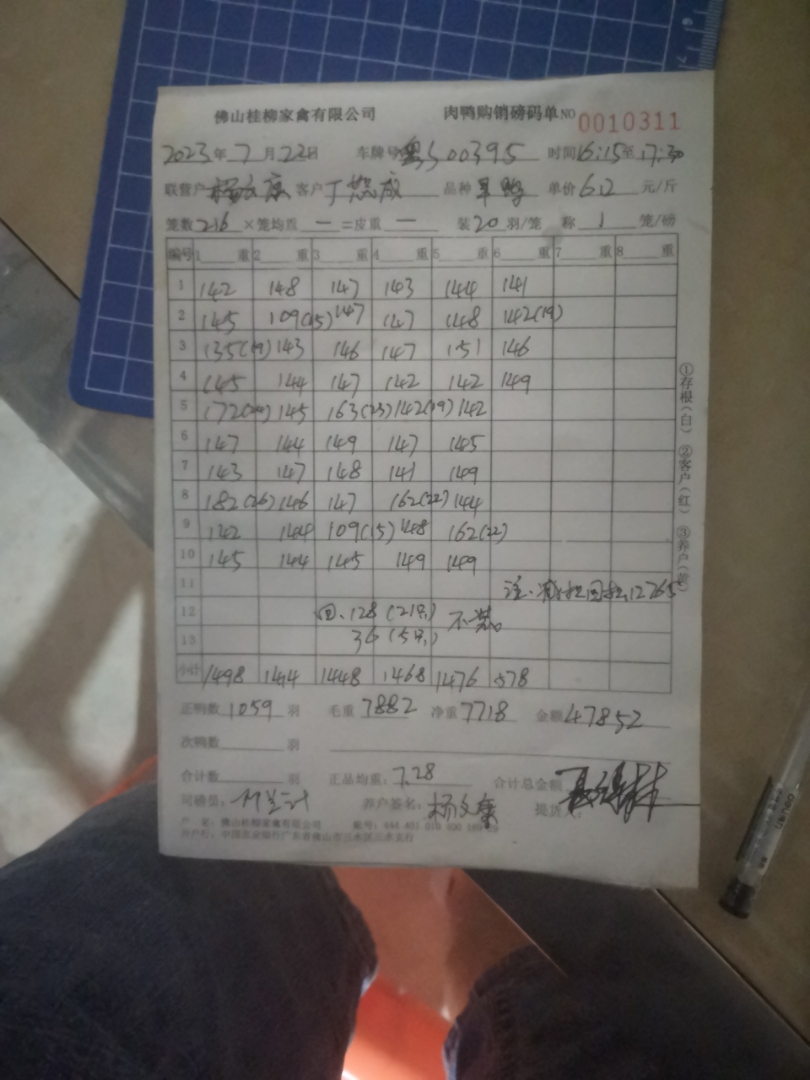 佛山桂柳家禽有限公司 肉鸭购销磅码单 NO 0010311
2023年7月22日 车牌号 粤S00395 时间16:15至17:30
联营户 客户 丁 成 品种 旱鸭 单价6.2元/斤
笼数216×笼均重一=皮重一 装20羽/笼 称1笼/磅
编号 1 重 2 重 3 重 4 重 5 重 6 重 7 重 8 重
1 142 148 147 143 144 141
2 145 109(15) 147 147 148 142(19)
3 135(19) 143 146 147 151 146
4 145 144 147 142 142 149
5 172 145 163(23) 142(19) 142
6 147 144 149 147 145
7 143 147 148 141 149
8 182(26) 146 147 162(22) 144
9 142 144 109(15) 148 162(22)
10 145 144 145 149 149
11
12 回.128(21只) 不装。
13 36(5只)
小计 1498 1414 1448 1468 1476 578
正鸭数1059羽 毛重7882 净重7718 金额47852
次鸭数 羽
合计数 羽 正品均重:7.28 合计总金额
司磅员: 养户签名:杨 康 提货人:
户 名:佛山桂柳家禽有限公司 帐号:
开户行:中国农业银行广东省佛山市三水区三水支行
①存根(白) ②客户(红) ③养户(黄)